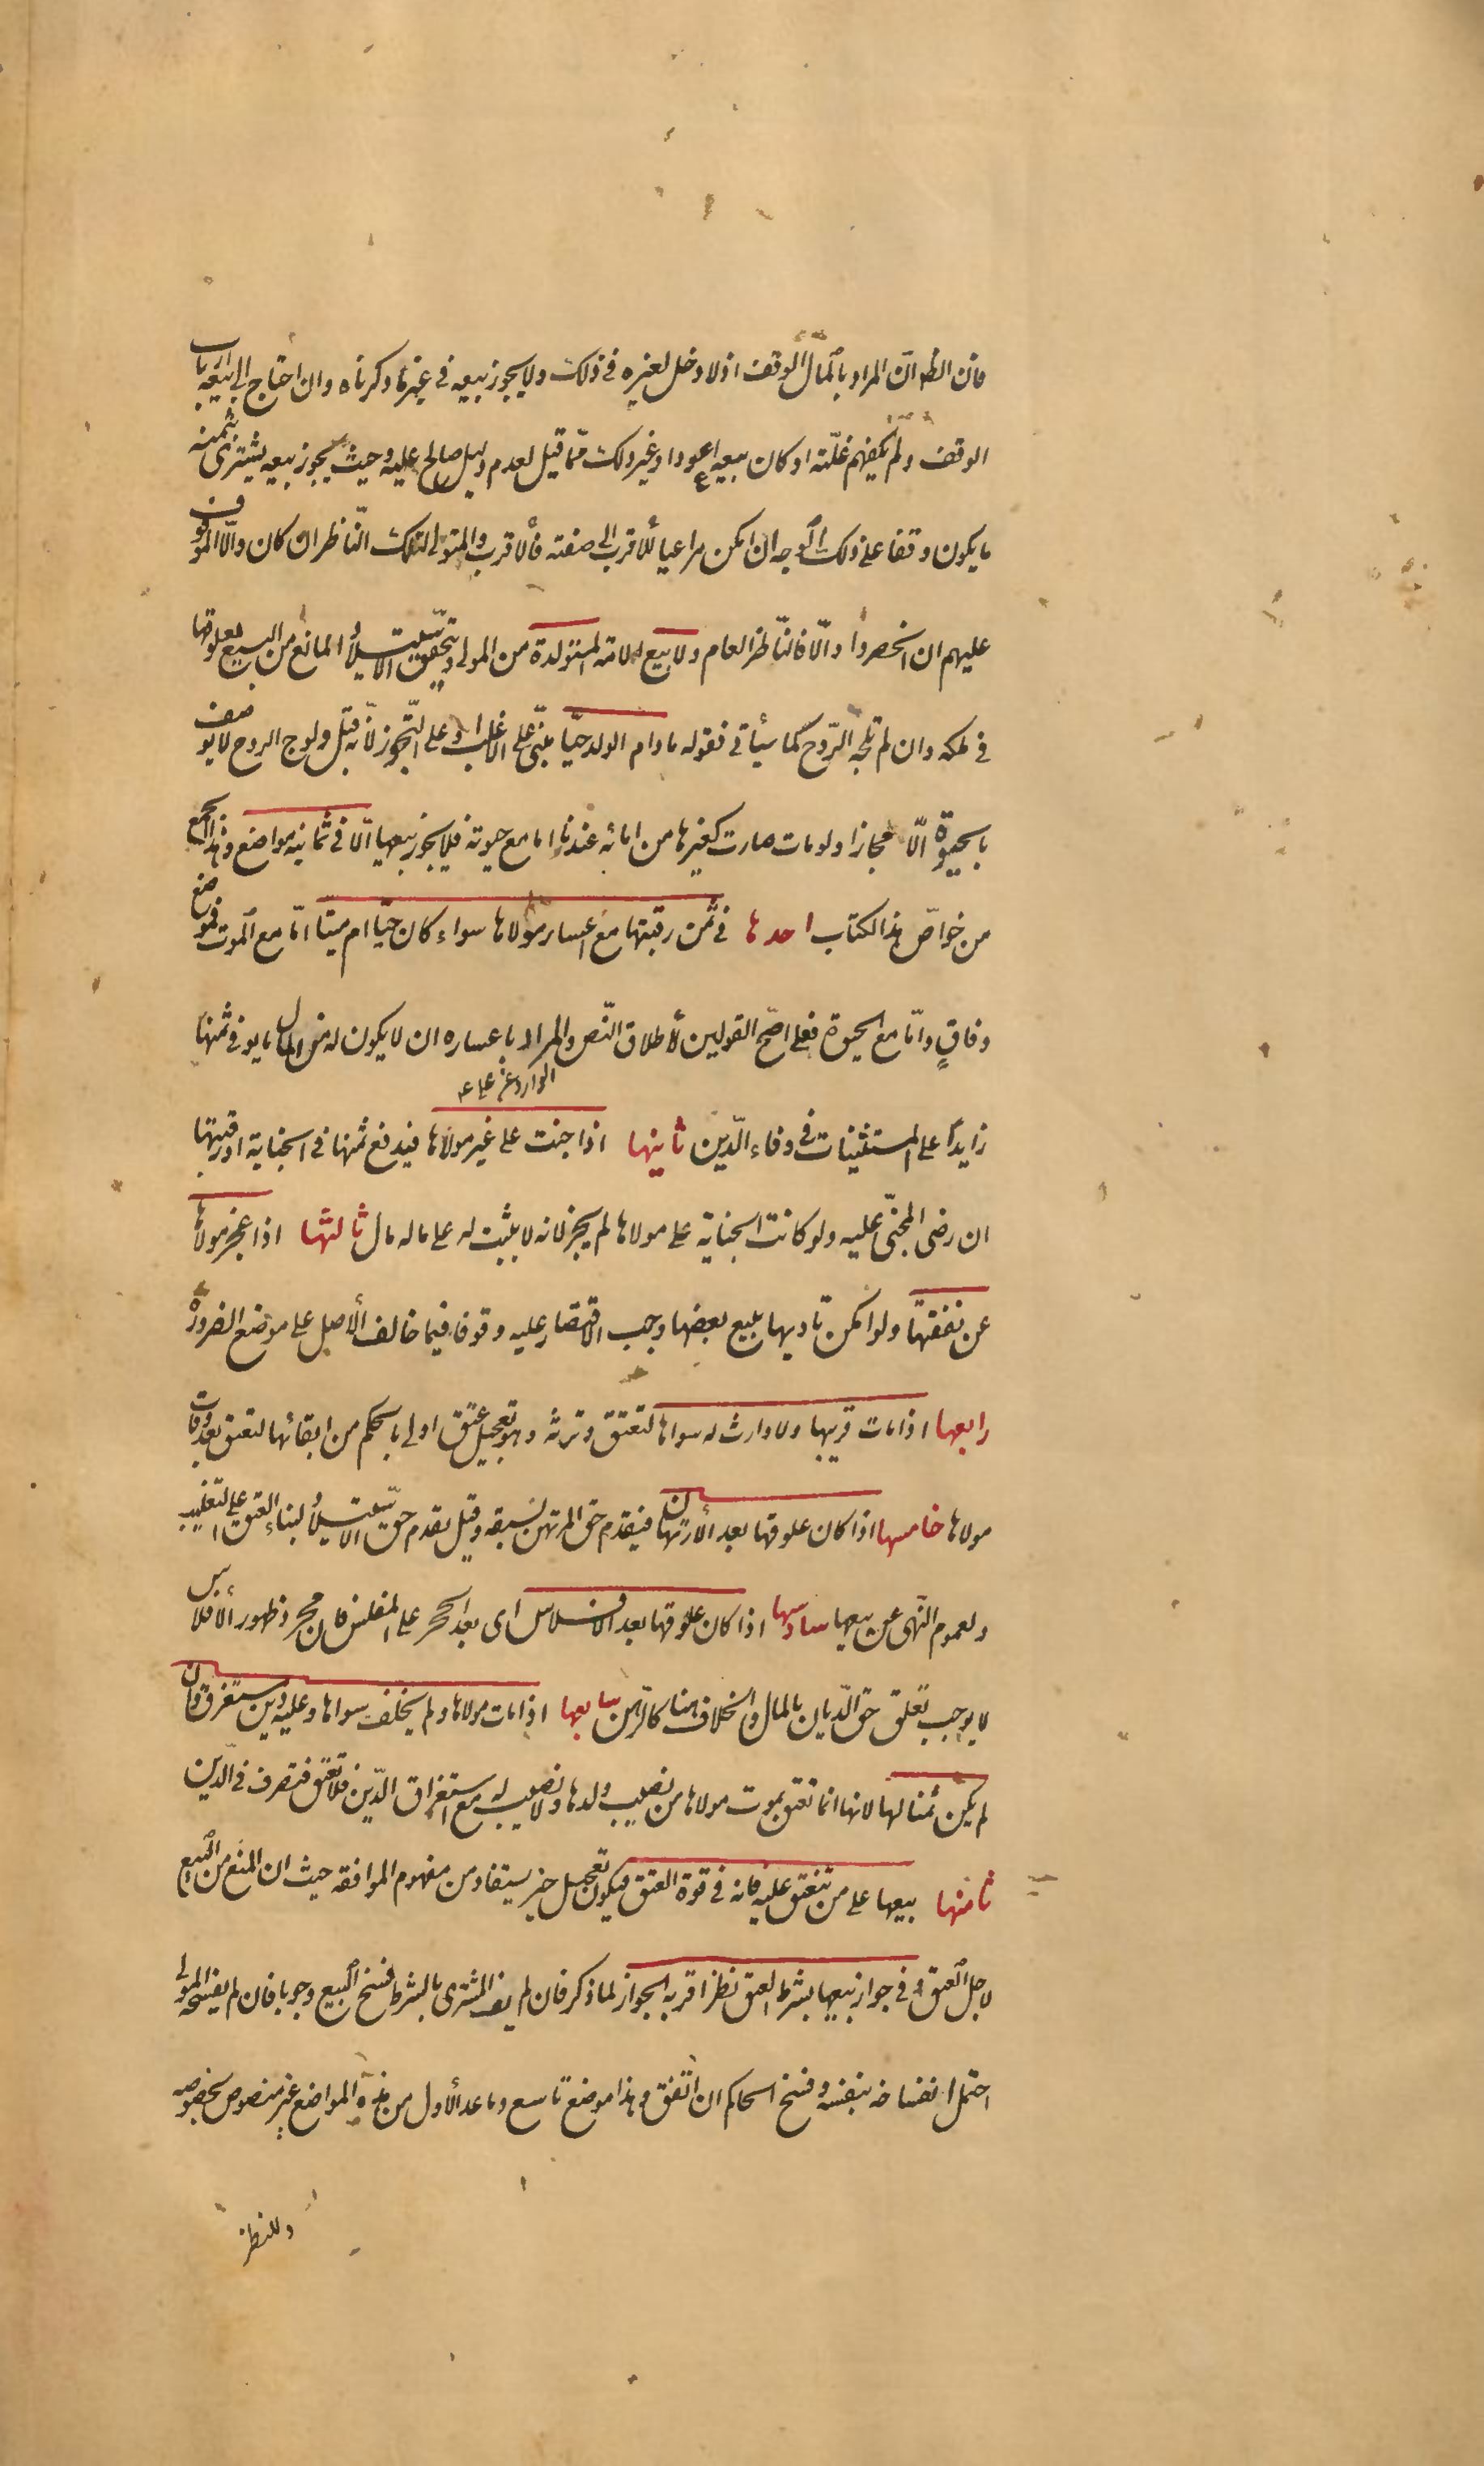 فان الظ ان المراد بالمال الوقف اذ لا دخل لغيره فى ذلك ولا يجوز بيعه فى غير ما ذكرناه وان احتاج الى بيعه ارباب
الوقف ولم يكفهم غلّته او كان بيعه اعود او غير ذلك ممّا قيل لعدم دليل صالح عليه وحيث يجوز بيعه يشترى بثمنه
ما يكون وقفا على ذلك الوجه ان امكن مراعيا للاقرب الى صفته فالاقرب والمتولى لذلك النّاظر ان كان والّا الموقوف
عليهم ان انحصروا والّا فالنّاظر العام ولا بيع الامة المستولدة من المولى ويتحقق الاستيلاد المانع من البيع بعلوقها
فى ملكه وان لم تلجه الرّوح كما سيأتى فقوله ما دام الولد حيّا مبنىّ على الاغلب او على التّجوز لانّه قبل ولوج الروح لا يوصف
بالحيوة الّا مجازا ولو مات صارت كغيرها من امائه عندنا اما مع حيوته فلا يجوز بيعها الّا فى ثمانية مواضع وهذا الجمع
من خواصّ هذا الكتاب احدها فى ثمن رقبتها مع اعسار مولاها سواء كان حيّا ام ميتا امّا مع الموت فموضع
وفاقٍ وامّا مع الحيوة فعلى اصحّ القولين لأطلاق النّص والمراد باعساره ان لا يكون له من المال ما يوفى ثمنها
زايدا على المستثنيات فى وفاء الدّين ثانيها اذا جنت على غير مولاها فيدفع ثمنها فى الجناية او رقبتها
ان رضى المجنىّ عليه ولو كانت الجناية على مولاها لم يجز لانه لا يثبت له على ماله مال ثالثها اذا عجز مولاها
عن نفقتها ولو امكن تاديها ببيع بعضها وجب الاقتصار عليه وقوفا فيما خالف الأصل على موضع الضرورة
رابعها اذا مات قريبها ولا وارث له سواها لتعتق وترثه وهو تعجيل عتق اولى بالحكم من ابقائها لتعتق بعد وفات
مولاها خامسها اذا كان علوقها بعد الأرتهان فيقدم حق المرتهن لسبقه وقيل يقدم حق الاستيلاد لبناء العتق على التغليب
ولعموم النّهى عن بيعها سادسها اذا كان علوقها بعد الافلاس اى بعد الحجر على المفلس فان مجرد ظهور الأفلاس
لا يوجب تعلق حق الدّيان بالمال والخلاف هنا كالرّهن سابعها اذا مات مولاها ولم يخلف سواها وعليه دين مستغرق وان
لم يكن ثمنا لها لانها انما تعتق بموت مولاها من نصيب ولدها ولا نصيب له مع استغراق الدّين فلا تعتق فتصرف فى الدّين
ثامنها بيعها على من تنعتق عليه فانه فى قوة العتق فيكون تعجيل خير يستفاد من مفهوم الموافقه حيث ان المنع من البيع
لاجل العتق وفى جواز بيعها بشرط العتق نظر اقربه الجواز لما ذكر فان لم يف المشترى بالشرط فسخ البيع وجوبا فان لم يفسخ المولى
احتمل انفساخه بنفسه وفسخ الحاكم ان اتفق وهذا موضع تاسع وما عدا الأول من هذه المواضع غير منصوص بخصوصه
وللنظر